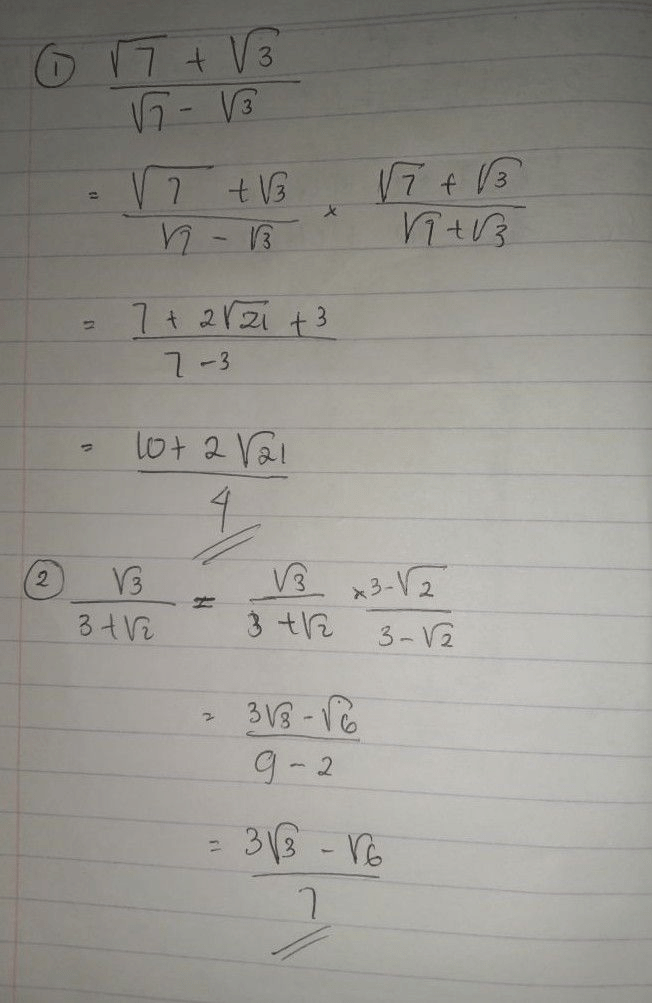 ① (√7 + √3)/(√7 - √3)
= (√7 + √3)/(√7 - √3) × (√7 + √3)/(√7 + √3)
= (7 + 2√21 + 3)/(7 - 3)
= (10 + 2√21)/4
② √3/(3 + √2) = √3/(3 + √2) × (3 - √2)/(3 - √2)
= (3√3 - √6)/(9 - 2)
= (3√3 - √6)/7